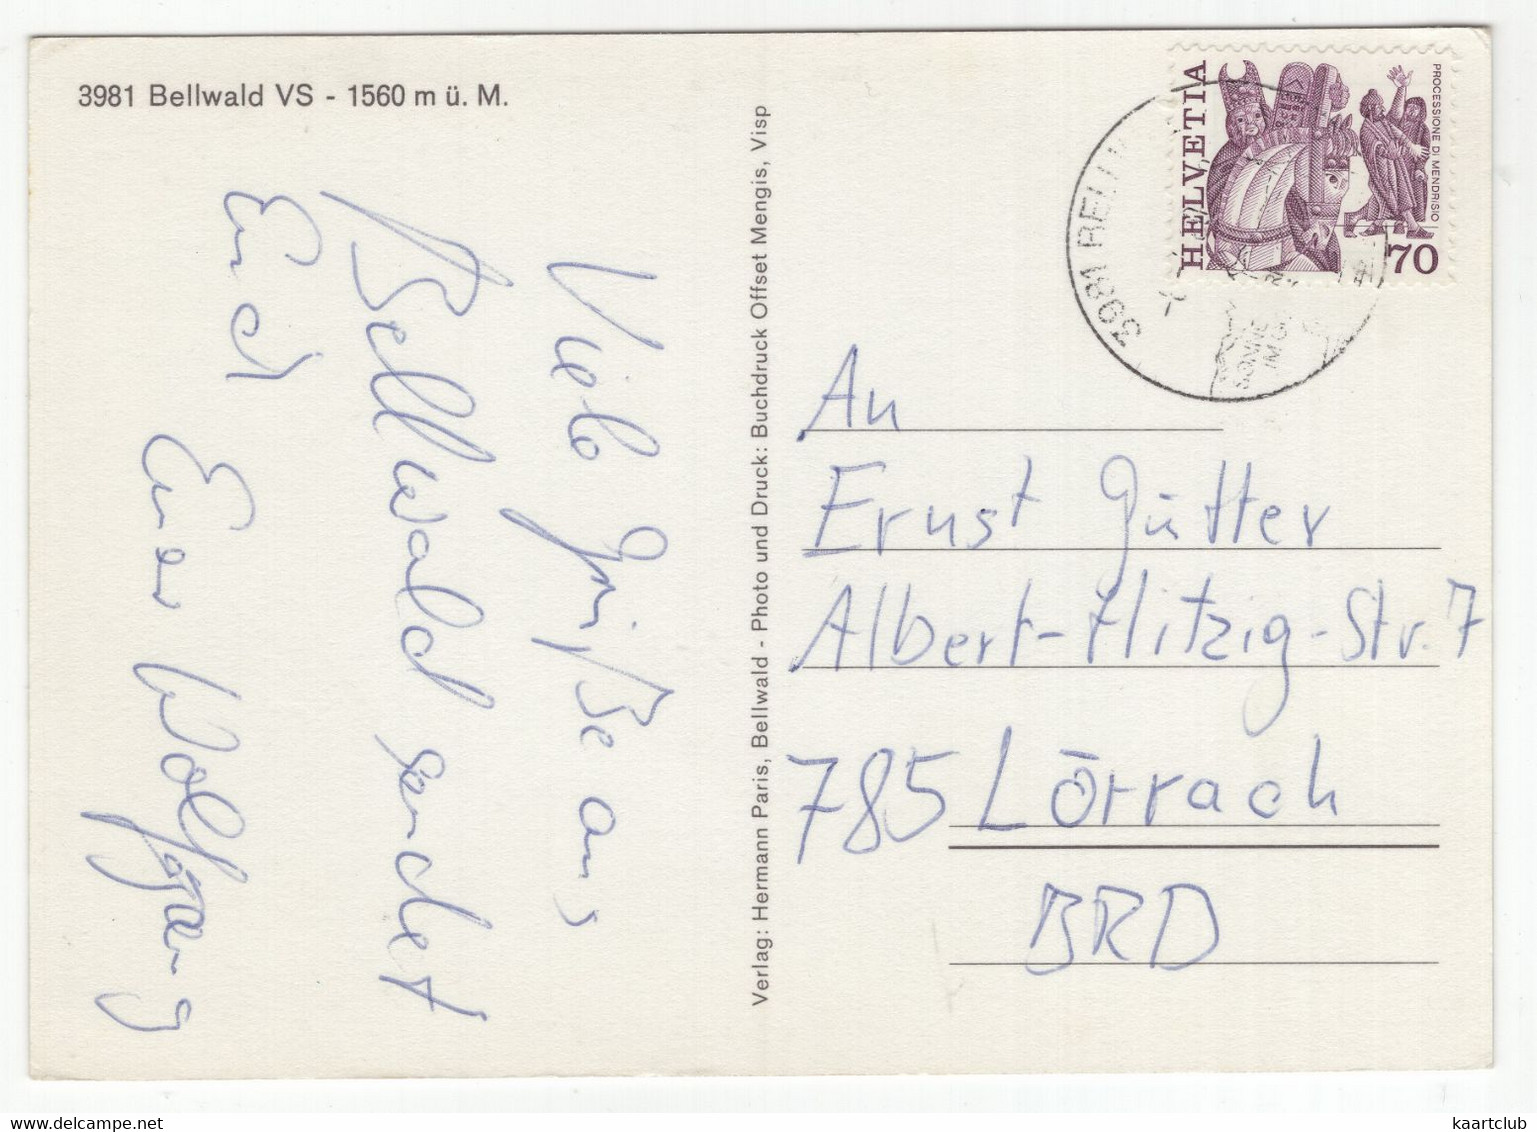 3981 Bellwald VS - 1560 m ü. M.
Viele Grüße aus
Bellwald sendet
Euch
Euer Wolfgang
Verlag: Hermann Paris, Bellwald - Photo und Druck: Buchdruck Offset Mengis, Visp
HELVETIA
PROCESSIONE DI MENDRISIO
70
3981 BELLW
SONNE
IM
An
Ernst Gütter
Albert-Hitzig-Str. 7
785 Lörrach
BRD
kaartclub